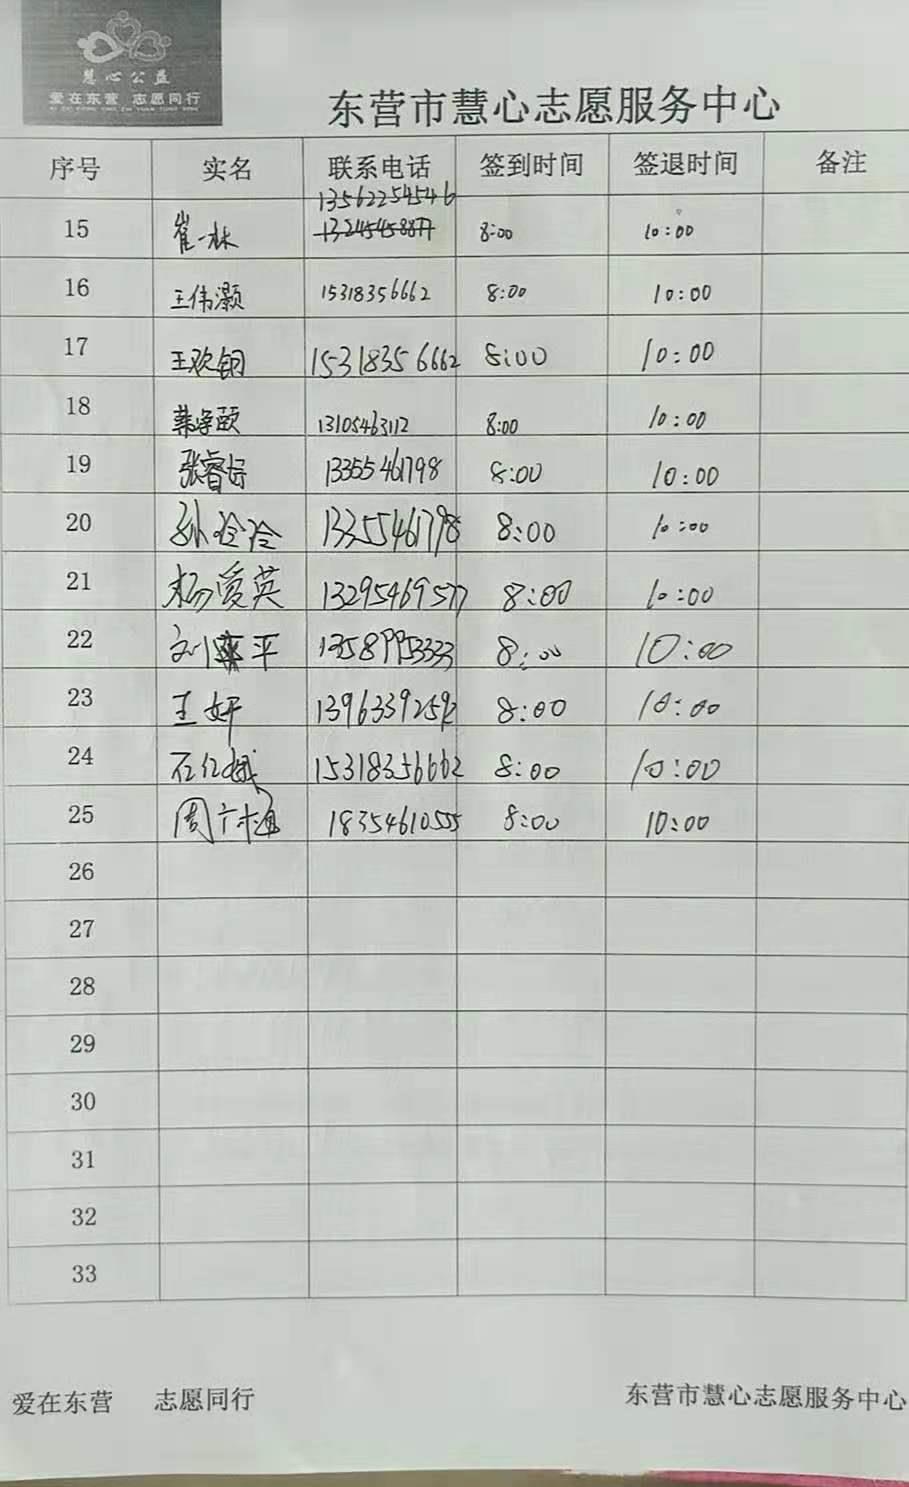 慧心公益
爱在东营 志愿同行
东营市慧心志愿服务中心
序号 实名 联系电话 签到时间 签退时间 备注
13562254546
15 崔一林 8:00 10:00
16 王伟灏 15318356662 8:00 10:00
17 王欣钥 15318356662 8:00 10:00
18 韩宇颐 13105463112 8:00 10:00
19 张睿妤 13355461798 8:00 10:00
20 孙玲玲 13355461798 8:00 10:00
21 杨爱英 13295469577 8:00 10:00
22 刘 平 13589953333 8:00 10:00
23 王妍 13963392592 8:00 10:00
24 石红娥 15318356662 8:00 10:00
25 周 18354610555 8:00 10:00
26
27
28
29
30
31
32
33
爱在东营 志愿同行 东营市慧心志愿服务中心